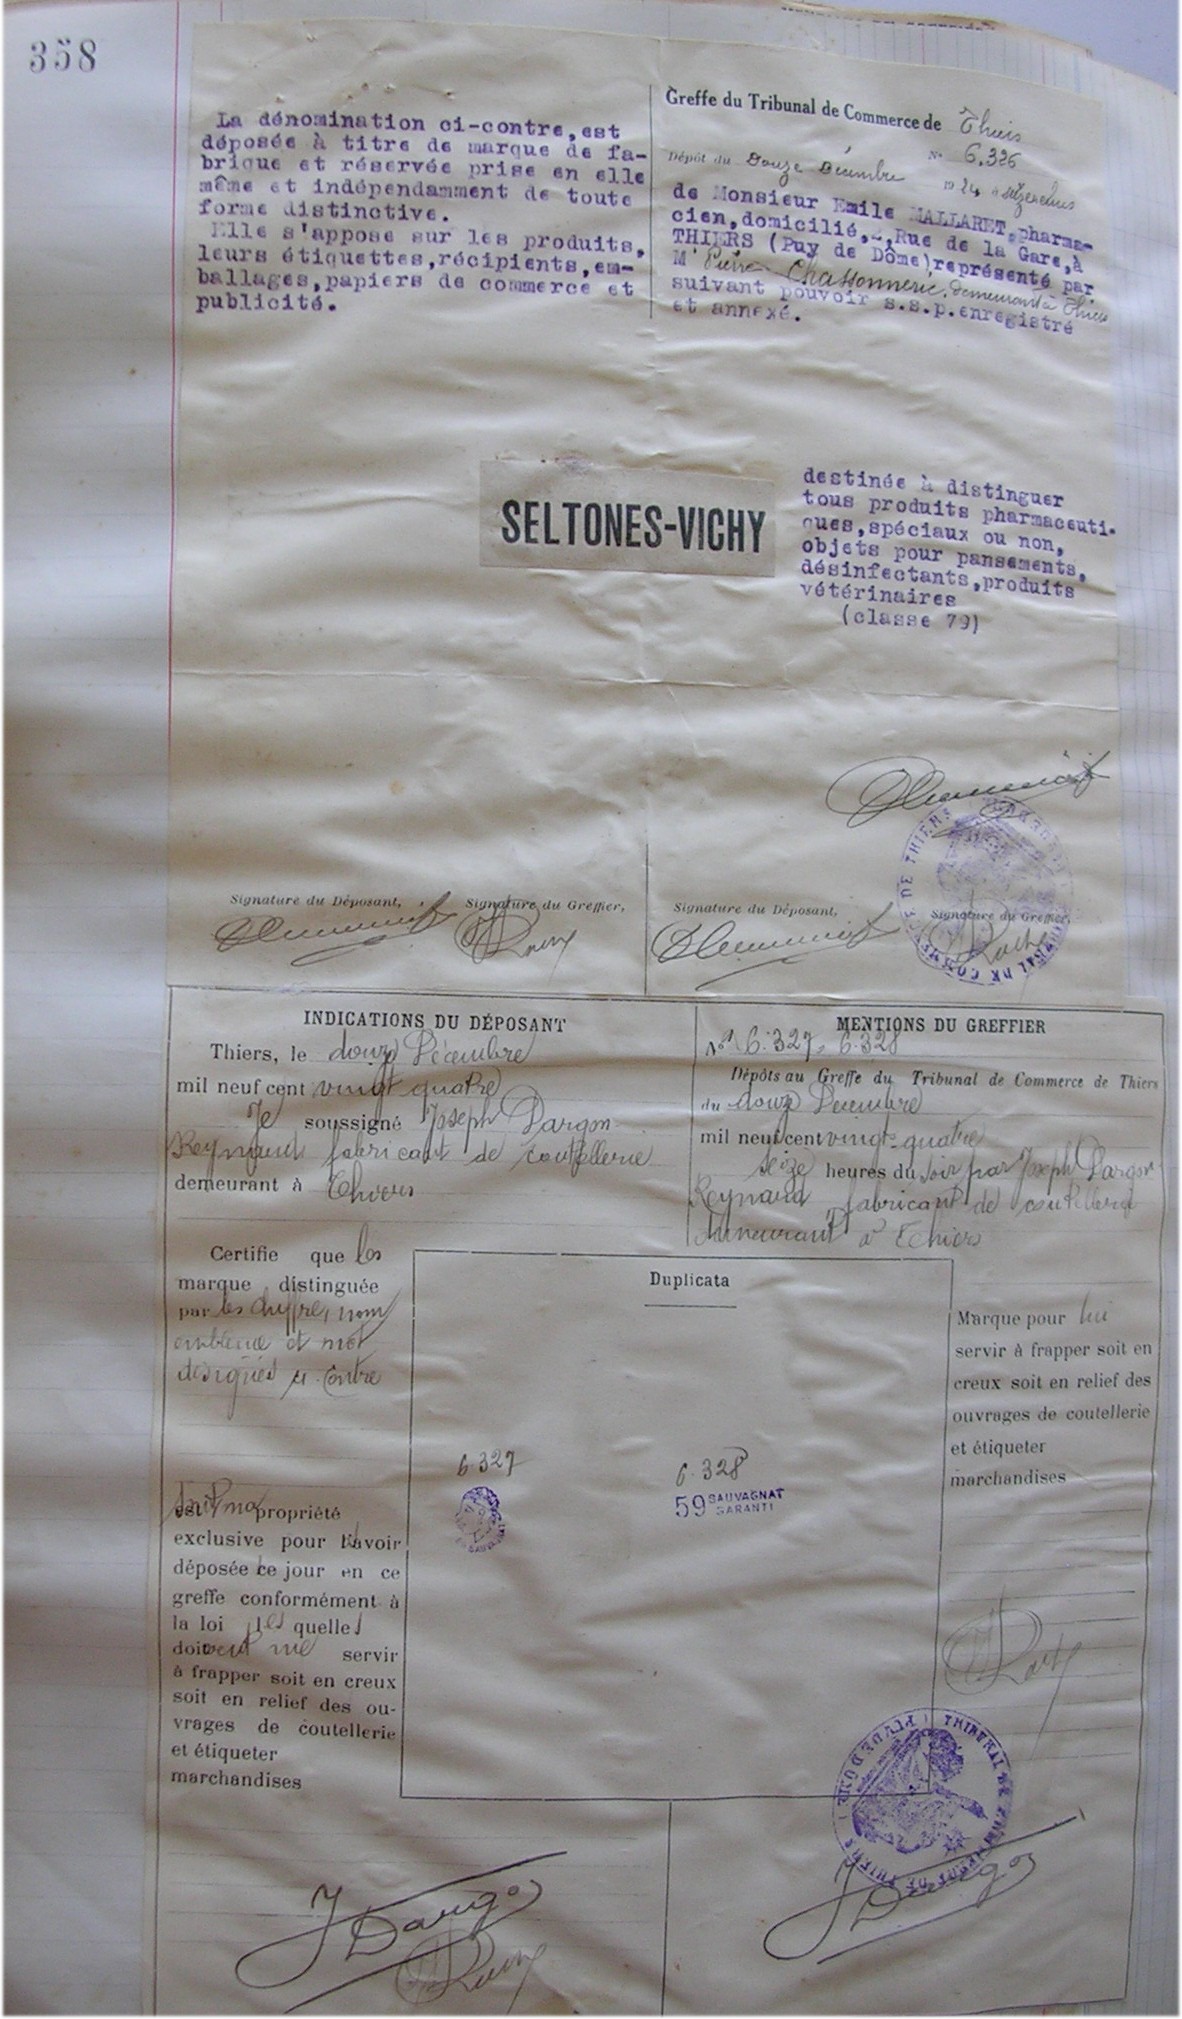 358
La dénomination ci-contre, est
déposée à titre de marque de fa-
brique et réservée prise en elle
même et indépendamment de toute
forme distinctive.
Elle s'appose sur les produits,
leurs étiquettes, récipients, em-
ballages, papiers de commerce et
publicité.
Greffe du Tribunal de Commerce de Thiers
N° 6.326
Dépôt du Douze Décembre 1924 à seize heures
de Monsieur Emile MALLARET, pharma-
cien, domicilié, Rue de la Gare, à
THIERS (Puy de Dôme) représenté par
Mr Pierre Chassonnerie, demeurant à Thiers
suivant pouvoir s.s.p. enregistré
et annexé.
SELTONES-VICHY
destinée à distinguer
tous produits pharmaceuti-
ques, spéciaux ou non,
objets pour pansements,
désinfectants, produits
vétérinaires
(classe 79)
Signature du Déposant,
Signature du Greffier,
Signature du Déposant,
Signature du Greffier,
INDICATIONS DU DÉPOSANT
Thiers, le douze Décembre
mil neuf cent vingt quatre
Je soussigné Joseph Dargon
Reynaud fabricant de coutellerie
demeurant à Thiers
MENTIONS DU GREFFIER
Nos 6.327, 6.328
Dépôts au Greffe du Tribunal de Commerce de Thiers
du douze Décembre
mil neuf cent vingt-quatre
seize heures du soir par Joseph Dargon
Reynaud fabricant de coutellerie
demeurant à Thiers
Certifie que les
marque distinguée
par les chiffre, nom
emblème et mot
désignés ci-contre
est ma propriété
exclusive pour l'avoir
déposée ce jour en ce
greffe conformément à
la loi les quelles
doivent me servir
à frapper soit en creux
soit en relief des ou-
vrages de coutellerie
et étiqueter
marchandises
Duplicata
6.327
6.328
59 SAUVAGNAT
GARANTI
Marque pour lui
servir à frapper soit en
creux soit en relief des
ouvrages de coutellerie
et étiqueter
marchandises
TRIBUNAL DE COMMERCE DE THIERS (PUY DE DOME)
J Dargon
J Dargon